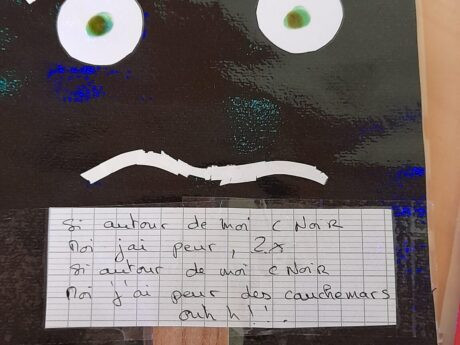 Si autour de moi c NOIR
Moi jai peur, 2x
Si autour de moi c NOIR
Moi j'ai peur des cauchemars
ouh h!!..